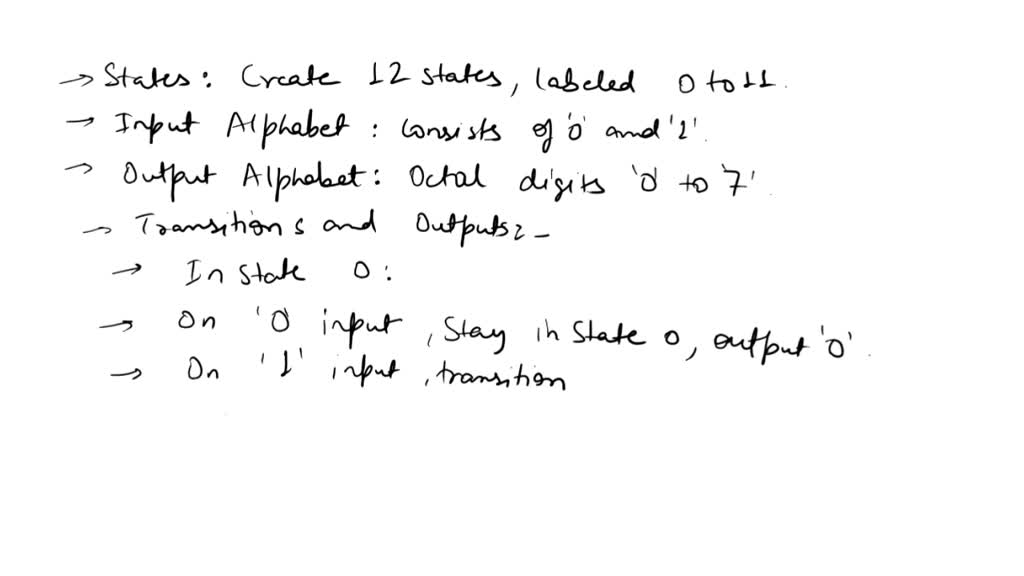 → States: Create 12 states, labeled 0 to 11.
→ Input Alphabet: Consists of '0' and '1'.
→ Output Alphabet: Octal digits '0' to 7'.
→ Transitions and Outputs: -
→ In state 0:
→ On '0' input, Stay in state 0, output '0'.
→ On '1' input, transition